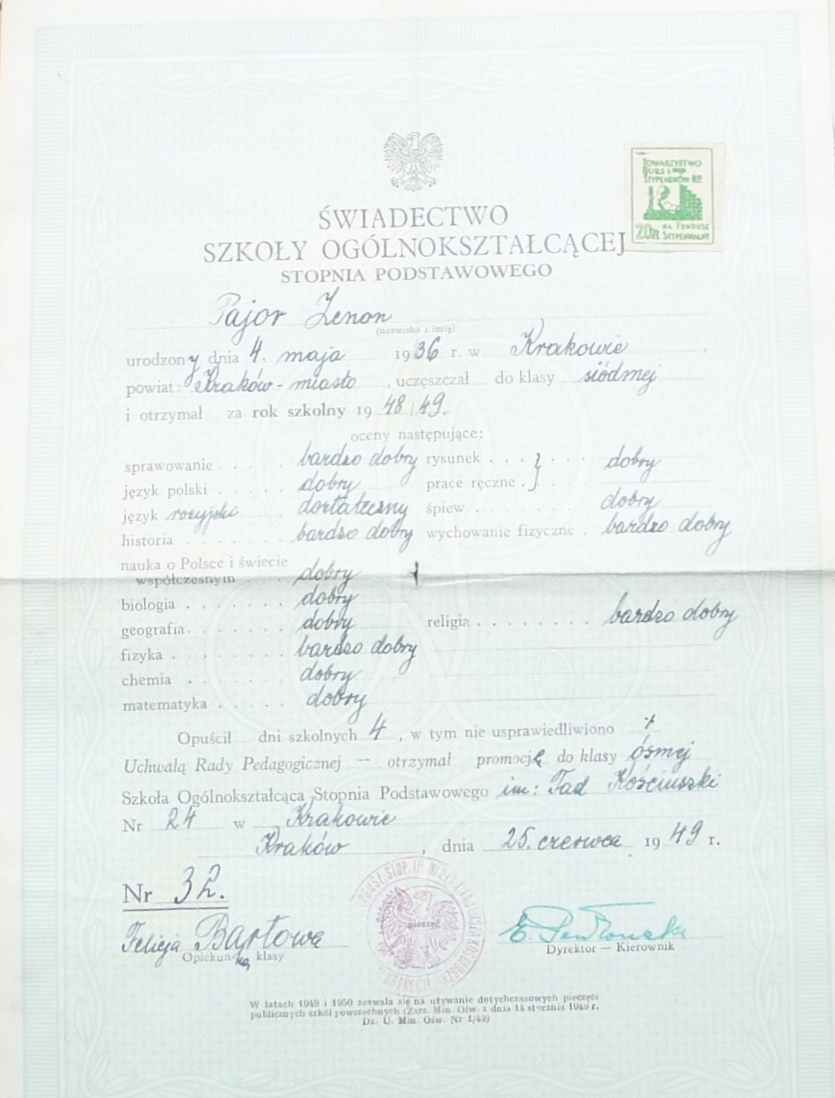 TOWARZYSTWO
BURS I
STYPENDIÓW RP.
20zł NA FUNDUSZ
STYPENDIALNY
ŚWIADECTWO
SZKOŁY OGÓLNOKSZTAŁCĄCEJ
STOPNIA PODSTAWOWEGO
Pajor Zenon
(nazwisko i imię)
urodzony dnia 4. maja 1936 r. w Krakowie
powiat: Kraków-miasto, uczęszczał do klasy siódmej
i otrzymał za rok szkolny 1948/49.
oceny następujące:
sprawowanie . . . . bardzo dobry rysunek . . . . } dobry
język polski . . . . . dobry prace ręczne . }
język rosyjski dostateczny śpiew . . . . . . . dobry
historia . . . . . . bardzo dobry wychowanie fizyczne . bardzo dobry
nauka o Polsce i świecie
współczesnym . . . dobry
biologia . . . . . . . dobry
geografia . . . . . . dobry religia . . . . . . . . bardzo dobry
fizyka . . . . . . . bardzo dobry
chemia . . . . . . . dobry
matematyka . . . . . dobry
Opuścił dni szkolnych 4, w tym nie usprawiedliwiono
Uchwałą Rady Pedagogicznej — otrzymał promocję do klasy ósmej
Szkoła Ogólnokształcąca Stopnia Podstawowego im: Tad Kościuszki
Nr 24 w Krakowie
Kraków, dnia 25. czerwca 1949 r.
Nr 32.
pieczęć
Felicja Bartowa
Opiekunka klasy
Dyrektor — Kierownik
W latach 1949 i 1950 zezwala się na używanie dotychczasowych pieczęci
publicznych szkół powszechnych (Zarz. Min. Ośw. z dnia 14 stycznia 1949 r.
Dz. U. Min. Ośw. Nr 1/49)